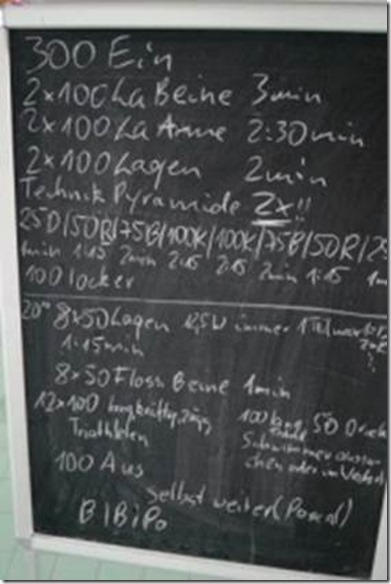 300 Ein
2x100 La Beine 3min
2x100 La Arme 2:30min
2x100 Lagen 2min
Technik Pyramide 2x!!
25D/50R/75B/100K/100K/75B/50R/25
1min 1:15 2min 2:15 2:15 2min 1:15 1m
100 locker
8x50 Lagen 12,5W immer
1:15min
8x50 Floss Beine 1min
12x100
Triathleten
100
50
100 Aus
selbst weiter (Pascal)
BIBiPo